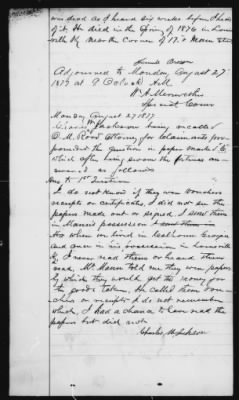 was dead as I heard six weeks before I heard
of it. He died in the Spring of 1876 in Louis
ville Ky near the corner of 17th & Main Street
Adjourned to Monday August 27th
1877 at 9 O'clock AM
Special Comr
Monday August 27 1877
Jackson being recalled
C. M. Wood Attorney for Claimants pro-
pounded the question in paper marked
which after being sworn the witness an-
swered as follows
Ans to 1st Question
I do not know if they were vouchers
receipts or certificates. I did not see the
papers made out or signed. I saw them
in Mann's possession
when we lived in
and once in his possession in Louisville
Ky. I never read them or heard them
read. Mr. Mann told me they were papers
by which they would get the money for
the goods taken. He called them vou-
chers or receipts I do not remember
which. I had a chance to have read the
papers but did not
Charles Jackson